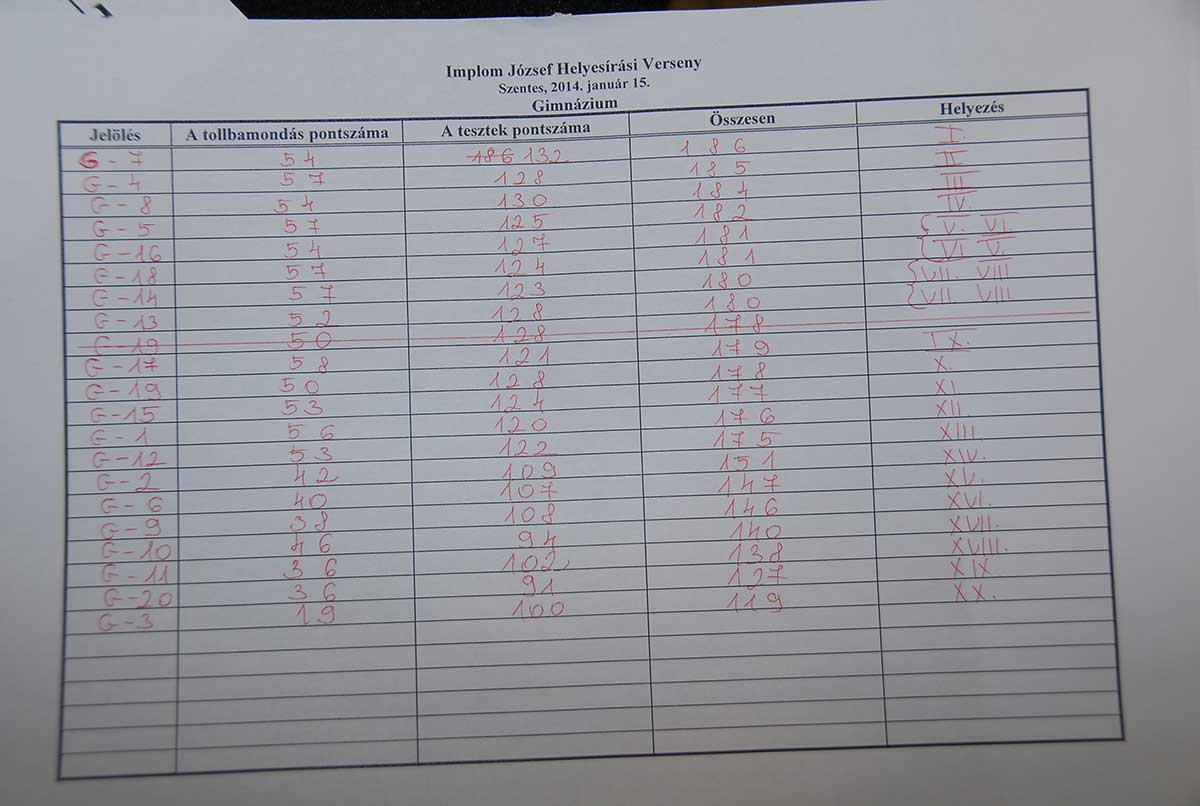 Implom József Helyesírási Verseny
Szentes, 2014. január 15.
Gimnázium
Jelölés A tollbamondás pontszáma A tesztek pontszáma Összesen Helyezés
G-7 54 186 132 186 I.
G-4 57 128 185 II
G-8 54 130 184 III
G-5 57 125 182 IV.
G-16 54 127 181 V. VI
G-18 57 124 181 VI V.
G-14 57 123 180 VII. VIII
G-13 52 128 180 VII VIII
G-19 50 128 178
G-17 58 121 179 IX.
G-19 50 128 178 X.
G-15 53 124 177 XI
G-1 56 120 176 XII
G-12 53 122 175 XIII
G-2 42 109 151 XIV.
G-6 40 107 147 XV.
G-9 38 108 146 XVI.
G-10 46 94 140 XVII.
G-11 36 102 138 XVIII.
G-20 36 91 127 XIX
G-3 19 100 119 XX.